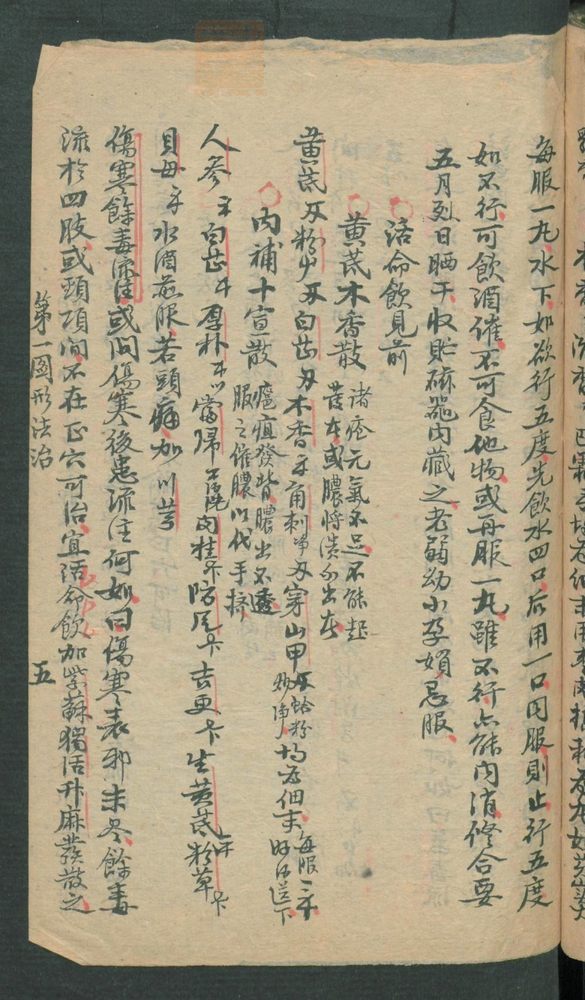 每服一丸水下如欲行五度先飲水四口后用一口同服則止行五度
如不行可飲酒催不可食他物或再服一丸雖不行亦能內消修合要
五月烈日晒干收貯磁器內藏之老弱幼小孕婦忌服
活命飲見前
黃芪木香散 諸瘡元氣不足不能起
發者或膿將潰不出者
黃芪 粉 白芷 木香 角刺 穿山甲 蛤粉 均為細末每服三
內補十宣散 瘡疽發背膿出不透
服之催膿以代手擠
人參 白芷 厚朴 當歸 肉桂 防風 吉更 生黃芪 粉草
貝母 水酒煎服若頭痛加川芎
傷寒餘毒流注或問傷寒後患流注何如曰傷寒表邪未尽餘毒
流於四肢或頸項間不在正穴可治宜活命飲加紫蘇獨活升麻發散之
第一圖形法治 五